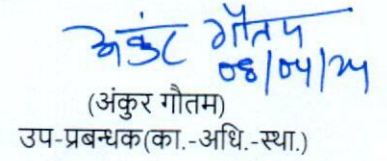 अंकुर गौतम
08/04/24
(अंकुर गौतम)
उप-प्रबन्धक(का.-अधि.-स्था.)